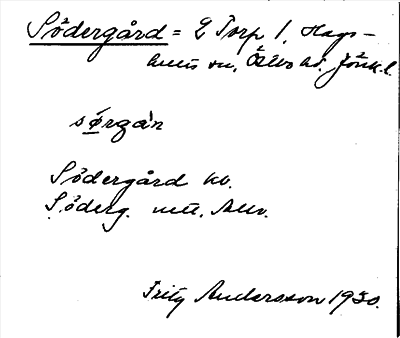 Södergård = 2 Torp 1, Hags-
hults sn, Östbo hd. Jönk. l.
sørgàn
Södergård kb.
Söderg. mtl.
Fritz Andersson 1930.